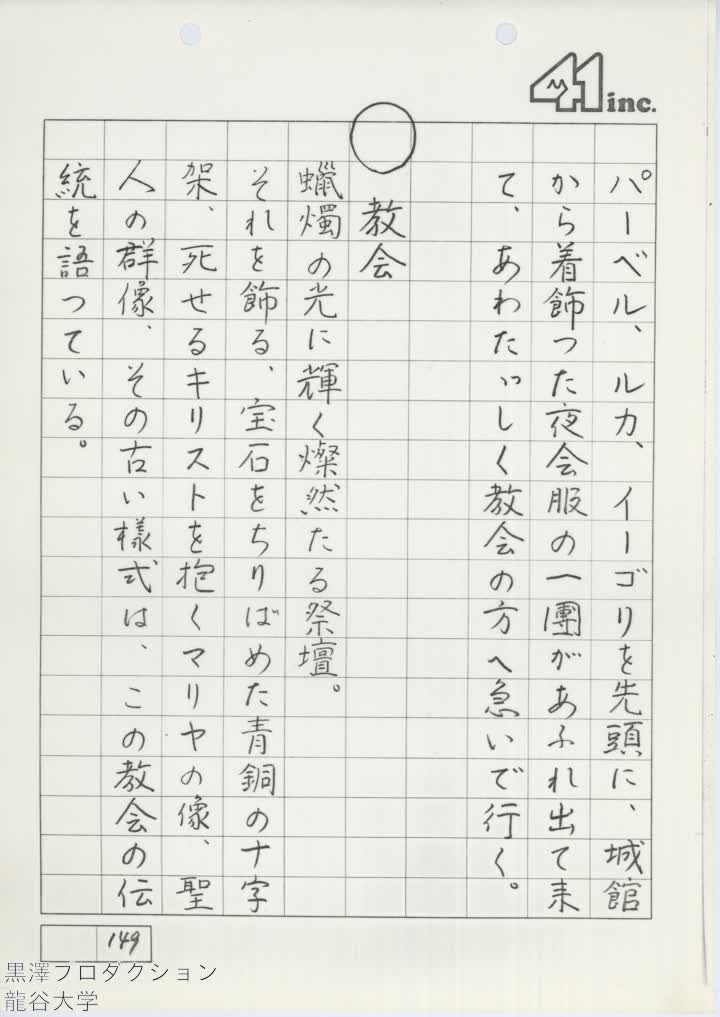 41 inc.
パーベル、ルカ、イーゴリを先頭に、城館
から着飾った夜会服の一團があふれ出て来
て、あわたゞしく教会の方へ急いで行く。
○ 教会
蠟燭の光に輝く燦然たる祭壇。
それを飾る、宝石をちりばめた青銅の十字
架、死せるキリストを抱くマリヤの像、聖
人の群像、その古い様式は、この教会の伝
統を語っている。
149
黒澤プロダクション
龍谷大学